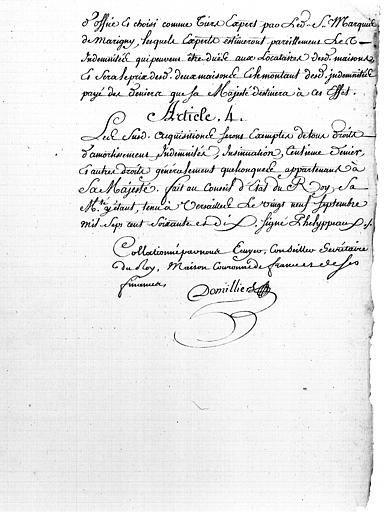 d'office et choisi comme Tiers Expert par led. S. Marquis
de Marigny, lesquels Experts estimeront pareillement les
Indemnités qui peuvent être dües aux Locataires desd. maisons
et sera le prix desd. deux maisons et le montant desd. indemnités
payé des deniers que Sa Majesté destinera à cet Effet.
Article 4.
Les Susd. acquisitions seront Exemptes de tous droits
d'amortissement, Indemnités, Insinuation, Centieme denier,
et autres droits généralement quelconques appartenant à
Sa Majesté. fait au Conseil d'Etat du Roy, Sa
M.té y étant, tenu à Versailles le vingt neuf Septembre
mil Sept cent Soixante et dix, signé Phelyppeaux
Collationné par nous Ecuyer, Conseiller Secrétaire
du Roy, Maison Couronne de france et de ses
finances